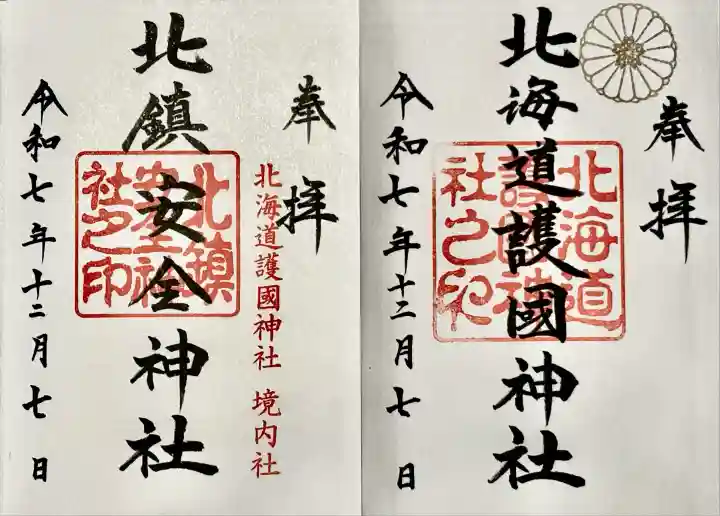 奉拝
北海道護國神社
北海道護國神社之印
令和七年十二月七日
奉拝
北海道護國神社 境内社
北鎮安全神社
北鎮安全神社之印
令和七年十二月七日